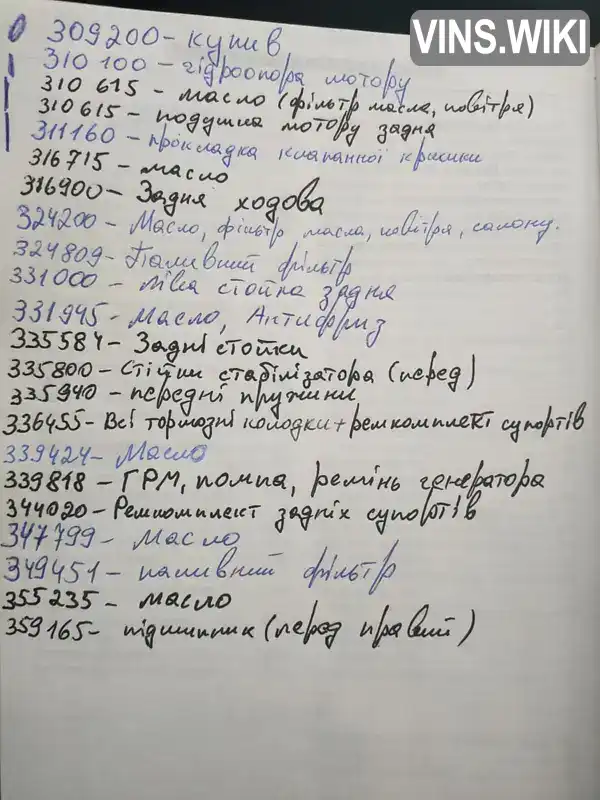 VINS.WIKI
309200 - купив
310 100 - гідроопора мотору
310 615 - масло (фільтр масла, повітря)
310615 - подушка мотору задня
311160 - прокладка клапанної кришки
316715 - масло
316900 - Задня ходова
324200 - Масло, фільтр масла, повітря, салону.
324809 - Паливний фільтр
331000 - ліва стойка задня
331945 - Масло, Антифриз
335584 - Задні стойки
335800 - Стійки стабілізатора (перед)
335940 - передні пружини
336455 - Всі тормозні колодки + ремкомплекті супортів
339424 - Масло
339818 - ГРМ, помпа, ремінь генератора
344020 - Ремкомплект задніх супортів
347799 - Масло
349451 - паливний фільтр
355235 - масло
359165 - підшипник (перед правий)